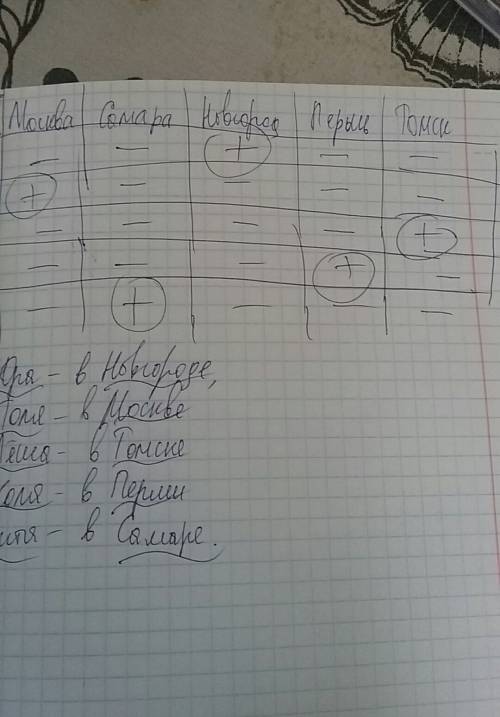 Москва Самара Новгород Пермь Томск
— — + — —
+ — — — —
— — — — +
— — — + —
— + — — —
Юра - в Новгороде,
Толя - в Москве
Лёша - в Томске
Коля - в Перми
итя - в Самаре.